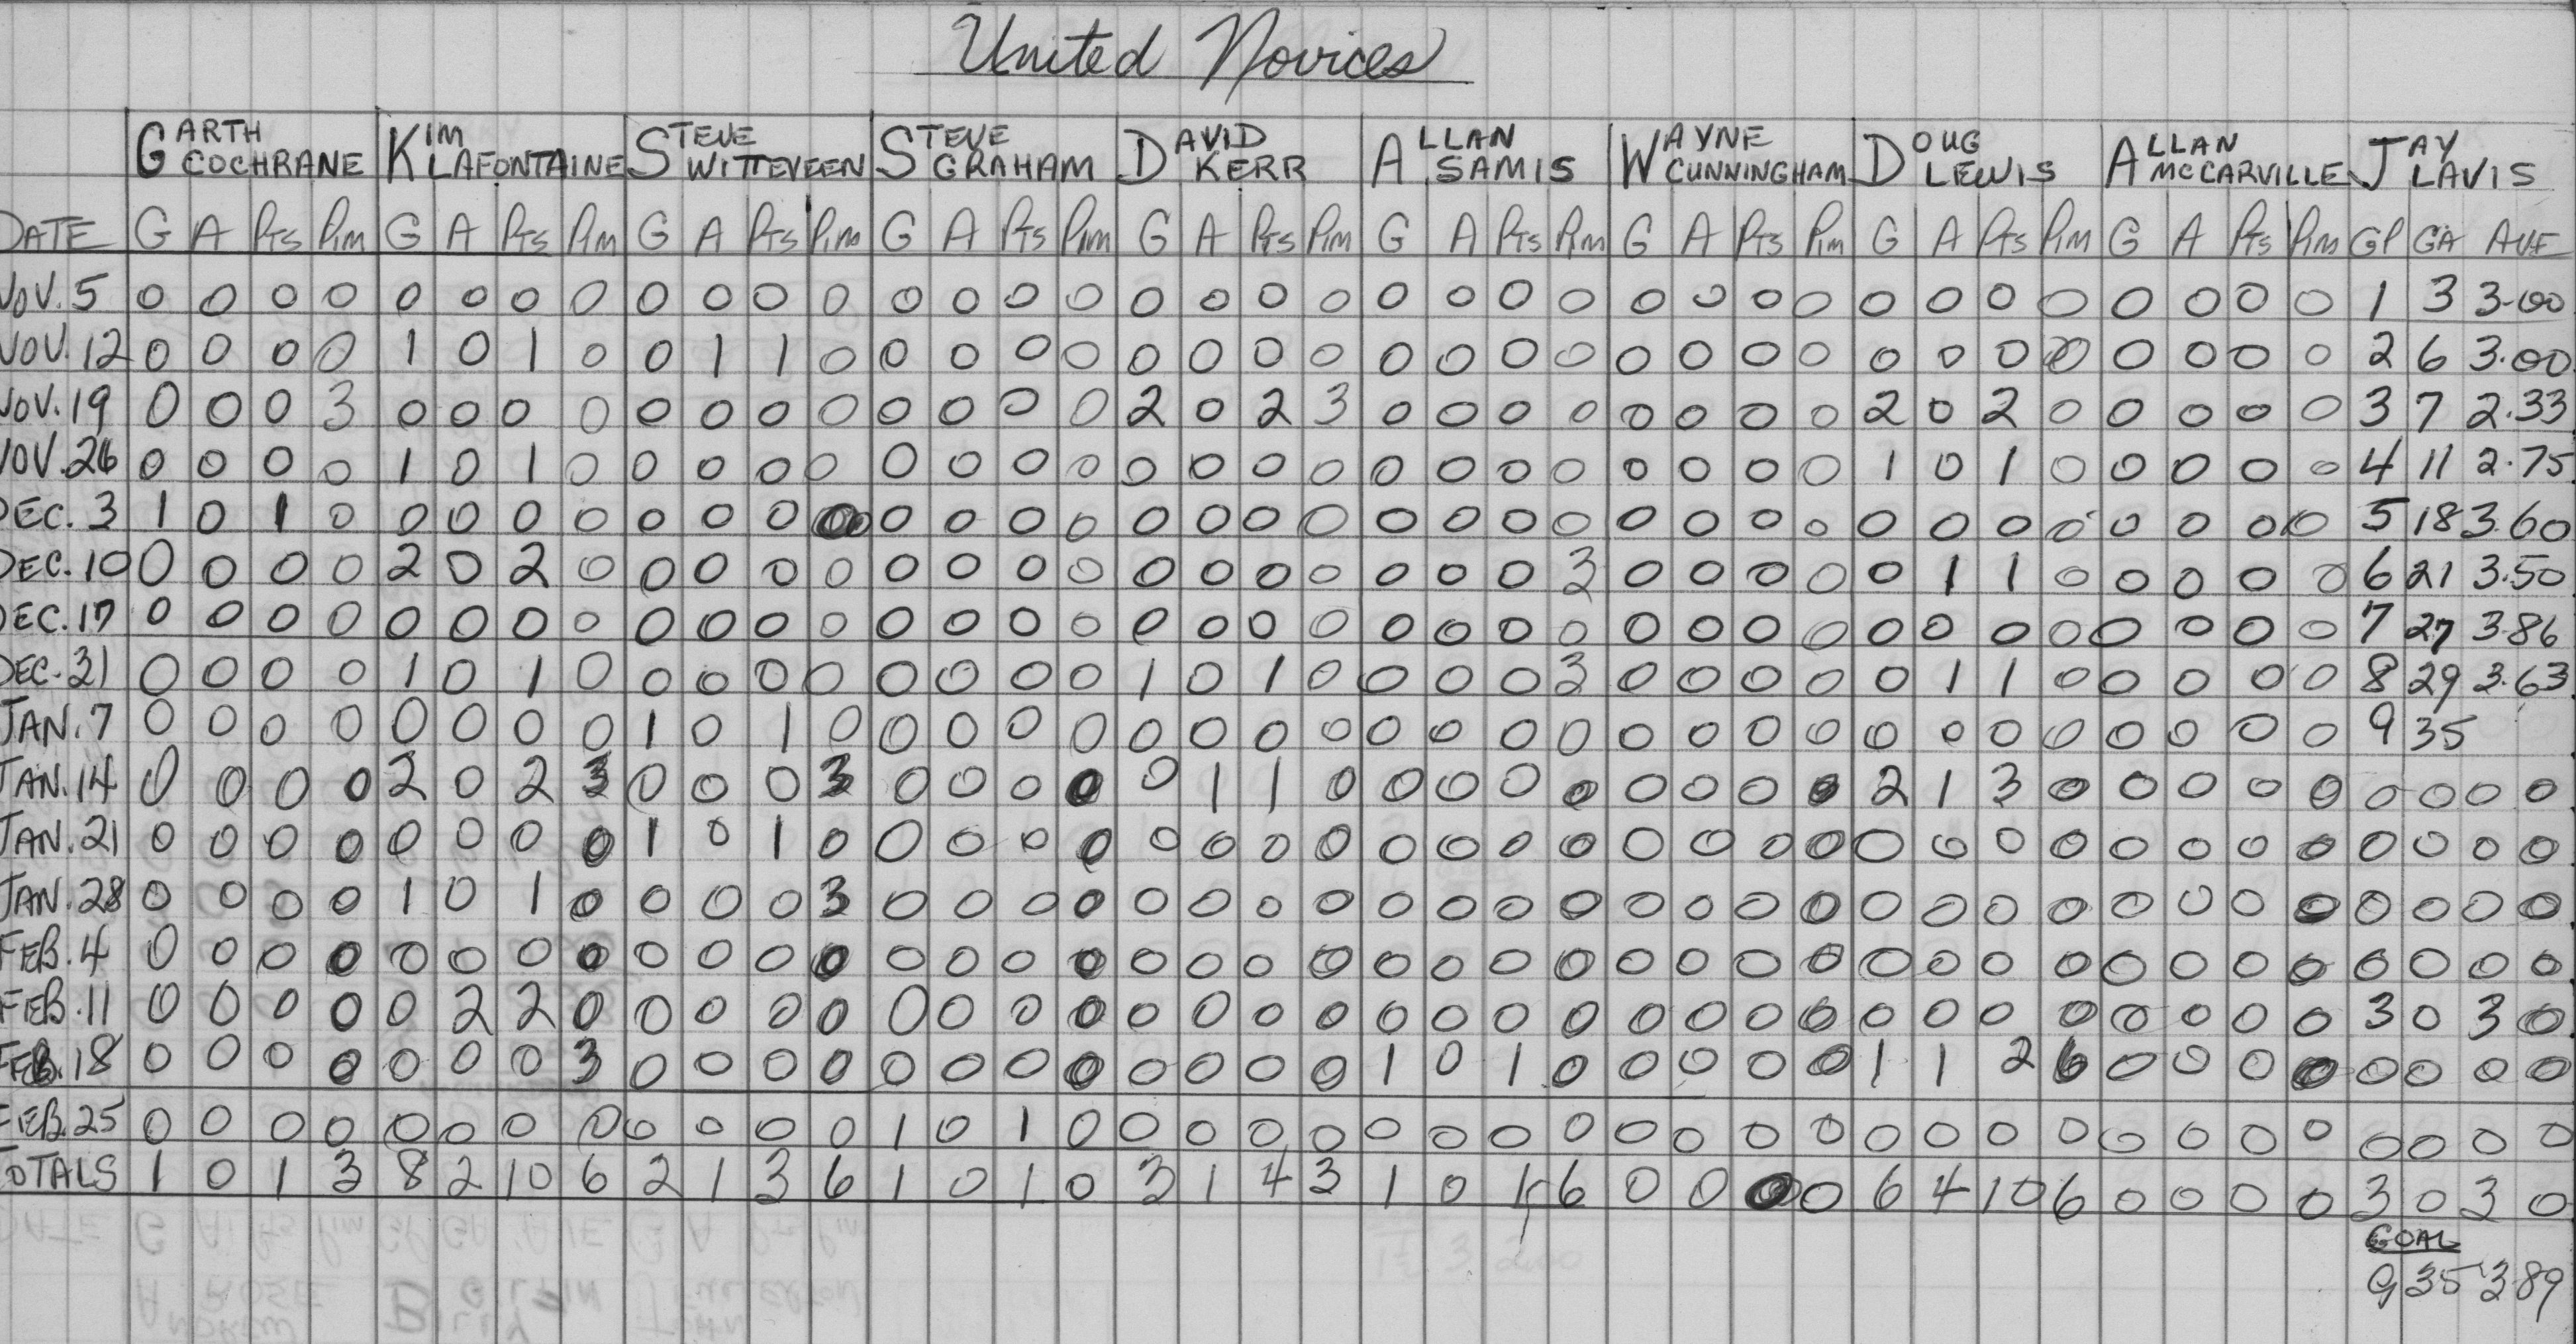 United Novices
GARTH COCHRANE KIM LAFONTAINE STEVE WITTEVEEN STEVE GRAHAM DAVID KERR ALLAN SAMIS WAYNE CUNNINGHAM DOUG LEWIS ALLAN MCCARVILLE JAY LAVIS
DATE G A Pts Pim G A Pts Pim G A Pts Pim G A Pts Pim G A Pts Pim G A Pts Pim G A Pts Pim G A Pts Pim G A Pts Pim GP GA AVE
NOV. 5 0 0 0 0 0 0 0 0 0 0 0 0 0 0 0 0 0 0 0 0 0 0 0 0 0 0 0 0 0 0 0 0 0 0 0 0 1 3 3.00
NOV. 12 0 0 0 0 1 0 1 0 0 1 1 0 0 0 0 0 0 0 0 0 0 0 0 0 0 0 0 0 0 0 0 0 0 0 0 0 2 6 3.00
NOV. 19 0 0 0 3 0 0 0 0 0 0 0 0 0 0 0 0 2 0 2 3 0 0 0 0 0 0 0 0 2 0 2 0 0 0 0 0 3 7 2.33
NOV. 26 0 0 0 0 1 0 1 0 0 0 0 0 0 0 0 0 0 0 0 0 0 0 0 0 0 0 0 0 1 0 1 0 0 0 0 0 4 11 2.75
DEC. 3 1 0 1 0 0 0 0 0 0 0 0 0 0 0 0 0 0 0 0 0 0 0 0 0 0 0 0 0 0 0 0 0 0 0 0 0 5 18 3.60
DEC. 10 0 0 0 0 2 0 2 0 0 0 0 0 0 0 0 0 0 0 0 0 0 0 0 3 0 0 0 0 0 1 1 0 0 0 0 0 6 21 3.50
DEC. 17 0 0 0 0 0 0 0 0 0 0 0 0 0 0 0 0 0 0 0 0 0 0 0 0 0 0 0 0 0 0 0 0 0 0 0 0 7 27 3.86
DEC. 31 0 0 0 0 1 0 1 0 0 0 0 0 0 0 0 0 1 0 1 0 0 0 0 3 0 0 0 0 0 1 1 0 0 0 0 0 8 29 3.63
JAN. 7 0 0 0 0 0 0 0 0 1 0 1 0 0 0 0 0 0 0 0 0 0 0 0 0 0 0 0 0 0 0 0 0 0 0 0 0 9 35
JAN. 14 0 0 0 0 2 0 2 3 0 0 0 3 0 0 0 0 0 1 1 0 0 0 0 0 0 0 0 0 2 1 3 0 0 0 0 0 0 0 0 0
JAN. 21 0 0 0 0 0 0 0 0 1 0 1 0 0 0 0 0 0 0 0 0 0 0 0 0 0 0 0 0 0 0 0 0 0 0 0 0 0 0 0 0
JAN. 28 0 0 0 0 1 0 1 0 0 0 0 3 0 0 0 0 0 0 0 0 0 0 0 0 0 0 0 0 0 0 0 0 0 0 0 0 0 0 0 0
FEB. 4 0 0 0 0 0 0 0 0 0 0 0 0 0 0 0 0 0 0 0 0 0 0 0 0 0 0 0 0 0 0 0 0 0 0 0 0 0 0 0 0
FEB. 11 0 0 0 0 0 2 2 0 0 0 0 0 0 0 0 0 0 0 0 0 0 0 0 0 0 0 0 0 0 0 0 0 0 0 0 0 3 0 3 0
FEB. 18 0 0 0 0 0 0 0 3 0 0 0 0 0 0 0 0 0 0 0 0 1 0 1 0 0 0 0 0 1 1 2 6 0 0 0 0 0 0 0 0
FEB. 25 0 0 0 0 0 0 0 0 0 0 0 0 1 0 1 0 0 0 0 0 0 0 0 0 0 0 0 0 0 0 0 0 0 0 0 0 0 0 0 0
TOTALS 1 0 1 3 8 2 10 6 2 1 3 6 1 0 1 0 3 1 4 3 1 0 1 6 0 0 0 0 6 4 10 6 0 0 0 0 3 0 3 0
GOAL
9 35 3.89